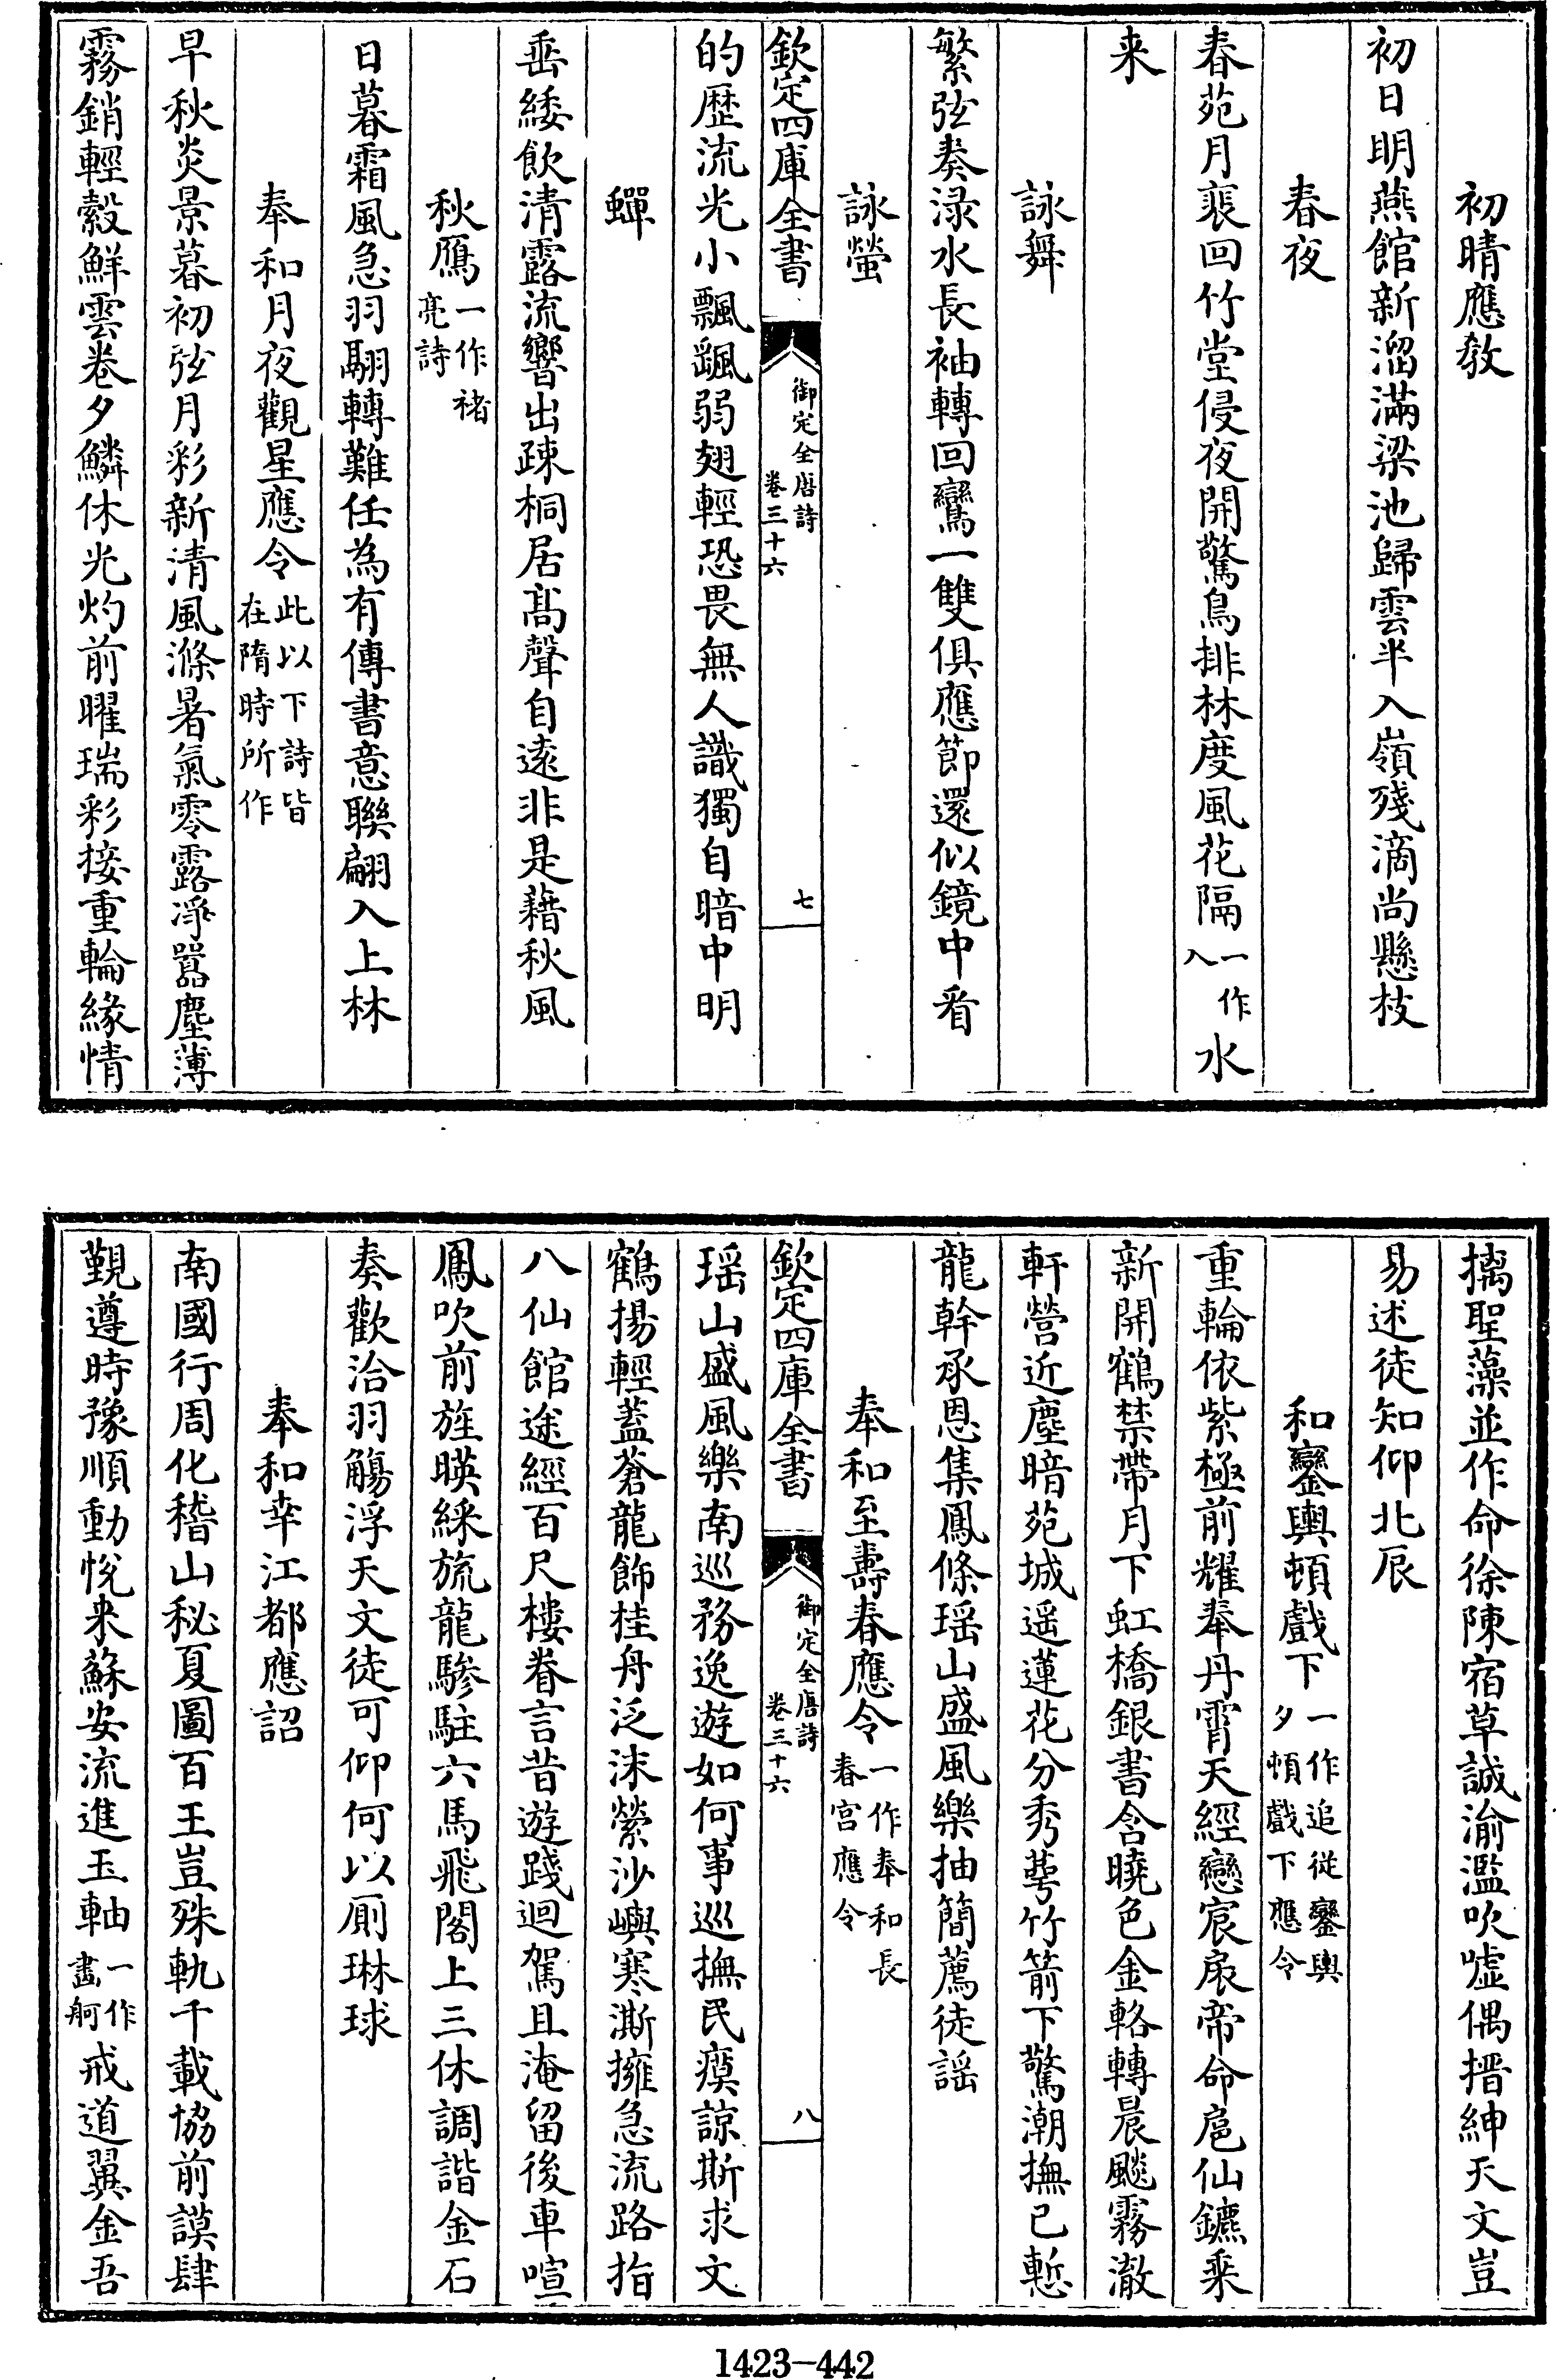 初晴應教
初日明燕館新溜滿梁池歸雲半入嶺殘滴尚懸枝
春夜
春苑月裵回竹堂侵夜開驚鳥排林度風花隔一作入水
来
詠舞
繁弦奏渌水長袖轉回鸞一雙俱應節還似鏡中看
詠螢
欽定四庫全書
御定全唐詩
卷三十六
七
的歴流光小飄颻弱翅輕恐畏無人識獨自暗中明
蟬
垂緌飲清露流響出疎桐居髙聲自遠非是藉秋風
秋鴈一作褚亮詩
日暮霜風急羽翮轉難任為有傳書意聯翩入上林
奉和月夜觀星應令此以下詩皆在隋時所作
早秋炎景暮初弦月彩新清風滌暑氣零露凈囂塵薄
霧銷輕縠鮮雲卷夕鱗休光灼前曜瑞彩接重輪緣情
摛聖藻並作命徐陳宿草誠渝濫吹噓偶搢紳天文豈
易述徒知仰北辰
和鑾輿頓戲下一作追從鑾輿夕頓戲下應令
重輪依紫極前耀奉丹霄天經戀宸扆帝命扈仙鑣乗
新開鶴禁帶月下虹橋銀書含曉色金輅轉晨飈霧澈
軒營近塵暗苑城遥蓮花分秀萼竹箭下驚潮撫已慙
龍幹承恩集鳳條瑶山盛風樂抽簡薦徒謡
奉和至壽春應令一作奉和長春宫應令
欽定四庫全書
御定全唐詩
卷三十六
八
瑶山盛風樂南巡務逸遊如何事巡撫民瘼諒斯求文
鶴揚輕蓋蒼龍飾桂舟泛沫縈沙嶼寒澌擁急流路指
八仙館途經百尺樓眷言昔遊踐迴駕且淹留後車喧
鳳吹前旌暎綵旒龍驂駐六馬飛閣上三休調諧金石
奏歡洽羽觴浮天文徒可仰何以厠琳球
奉和幸江都應詔
南國行周化稽山秘夏圖百王豈殊軌千載協前謨肆
覲遵時豫順動悅来蘇安流進玉軸一作畫舸戒道翼金吾
1423-442